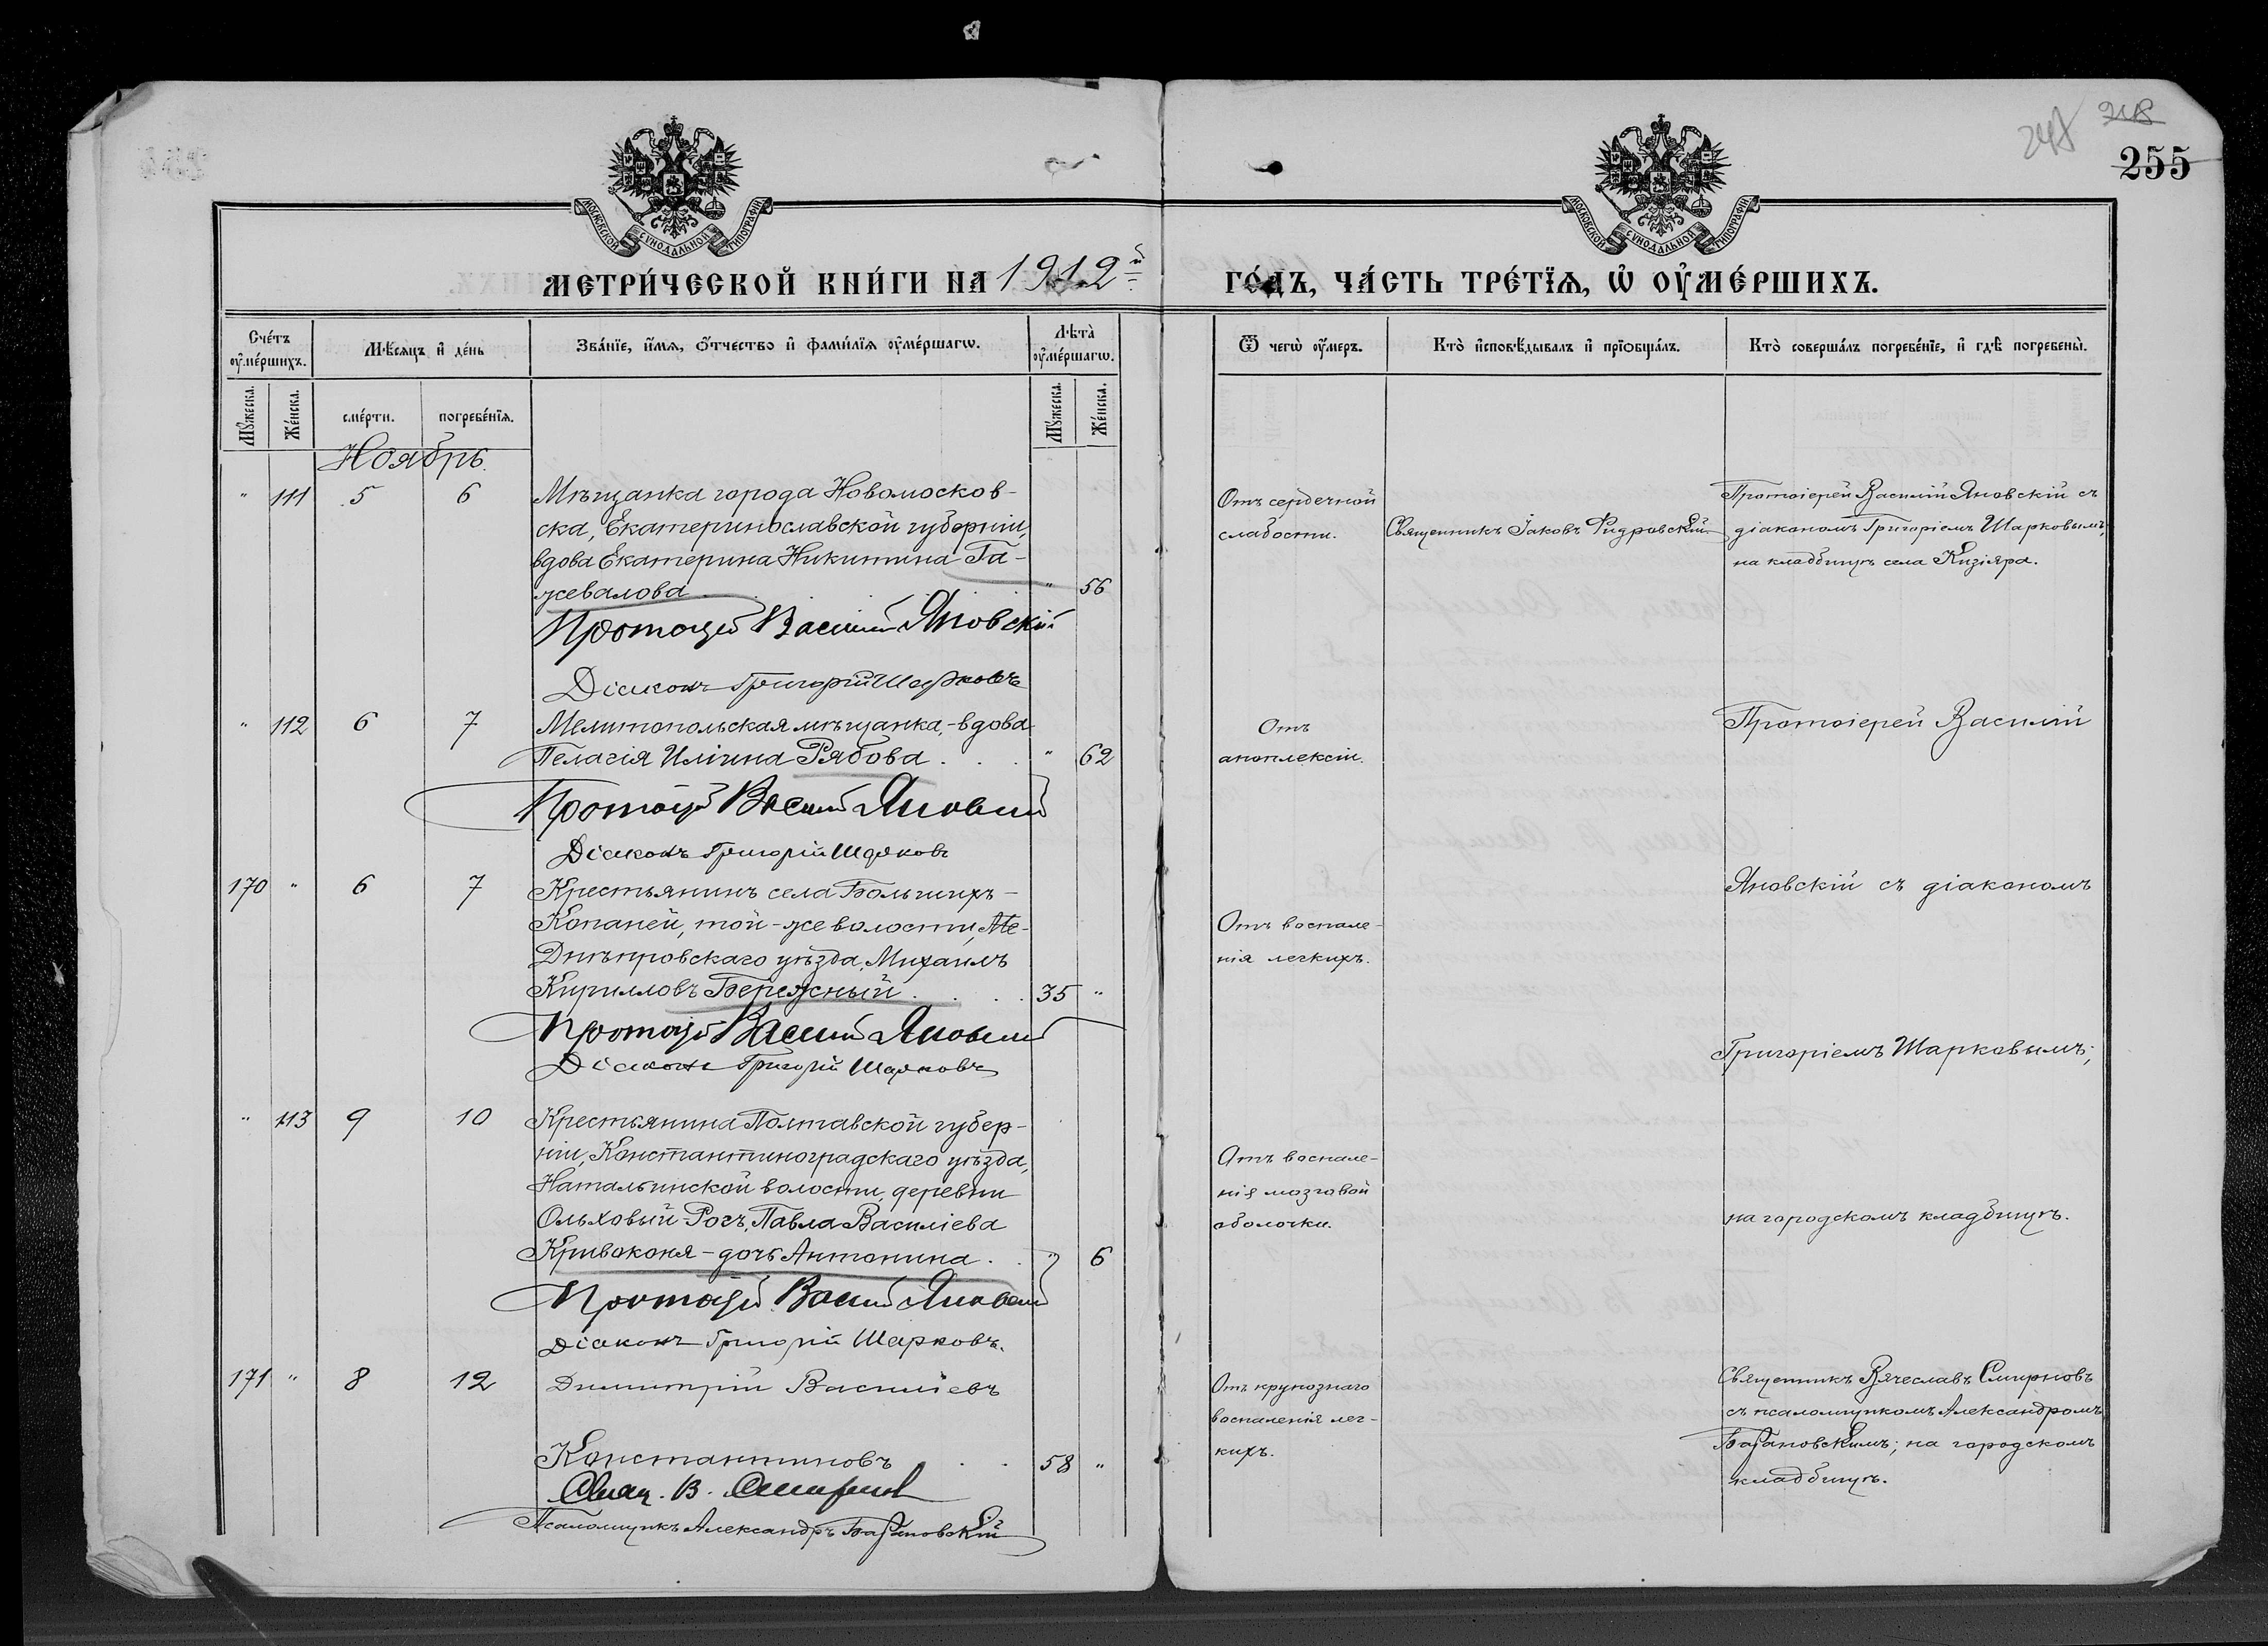 248
248
255
МОСКОВСКОЙ СѴНОДАЛЬНОЙ ТИПОГРАФІИ
МОСКОВСКОЙ СѴНОДАЛЬНОЙ ТИПОГРАФІИ
МЕТРИ́ЧЕСКОЙ КНИ́ГИ НА 1912й
ГО́ДЪ, ЧА́СТЬ ТРЕ́ТЇѦ, Ѡ҆ ОУ҆МЕ́РШИХЪ.
Сче́тъ оу҆ме́ршихъ.
Мѣ́сѧцъ и҆ де́нь
Зва́нїе, и҆́мѧ, ѻ҆́тчество и҆ фами́лїѧ оу҆ме́ршагѡ.
Лѣ́та оу҆ме́ршагѡ.
Ѿ чегѡ̀ оу҆́меръ.
Кто̀ и҆сповѣ́дывалъ и҆ прїѡбща́лъ.
Кто̀ соверша́лъ погребе́нїе, и҆ гдѣ̀ погребены̀.
Мꙋ́жеска.
Же́нска.
сме́рти.
погребе́нїѧ.
Мꙋ́жеска.
Же́нска.
Ноябрь.
" 111 5 6 Мѣщанка города Новомосков-
ска, Екатеринославской губерніи,
вдова Екатерина Никитина Га-
жевалова . " 56
Протоіерей Василій Яновскій
Діаконъ Григорій Шарковъ
Отъ сердечной
слабости.
Священникъ Іаковъ
Протоіерей Василій Яновскій съ
діакономъ Григоріемъ Шарковымъ;
на кладбищѣ села Кизіяра.
" 112 6 7 Мелитопольская мѣщанка,-вдова
Пелагія Иліина Рябова . . . " 62
Протоіерей Василій Яновскій
Діаконъ Григорій Шарковъ
Отъ
апоплексіи.
Протоіерей Василій
170 " 6 7 Крестьянинъ села Большихъ-
Копаней, той-же волости,
Днѣпровскаго уѣзда, Михаилъ
Кирилловъ Бережный . . . 35 "
Протоіерей Василій Яновскій
Діаконъ Григорій Шарковъ
Отъ воспале-
нія легкихъ.
Яновскій съ діакономъ
Григоріемъ Шарковымъ;
" 113 9 10 Крестьянина Полтавской губер-
ніи, Константиноградскаго уѣзда,
Натальинской волости, деревни
Ольховый-Рогъ, Павла Василіева
Кривоконя-дочь Антонина . . " 6
Протоіерей Василій Яновскій
Діаконъ Григорій Шарковъ.
Отъ воспале-
нія мозговой
оболочки.
на городскомъ кладбищѣ.
171 " 8 12 Димитрій Василіевъ
Константиновъ . . 58 "
Свящ. В. Смирновъ
Псаломщикъ Александръ Барановскій
Отъ крупознаго
воспаленія лег-
кихъ.
Священникъ Вячеславъ Смирновъ
съ псаломщикомъ Александромъ
Барановскимъ; на городскомъ
кладбищѣ.